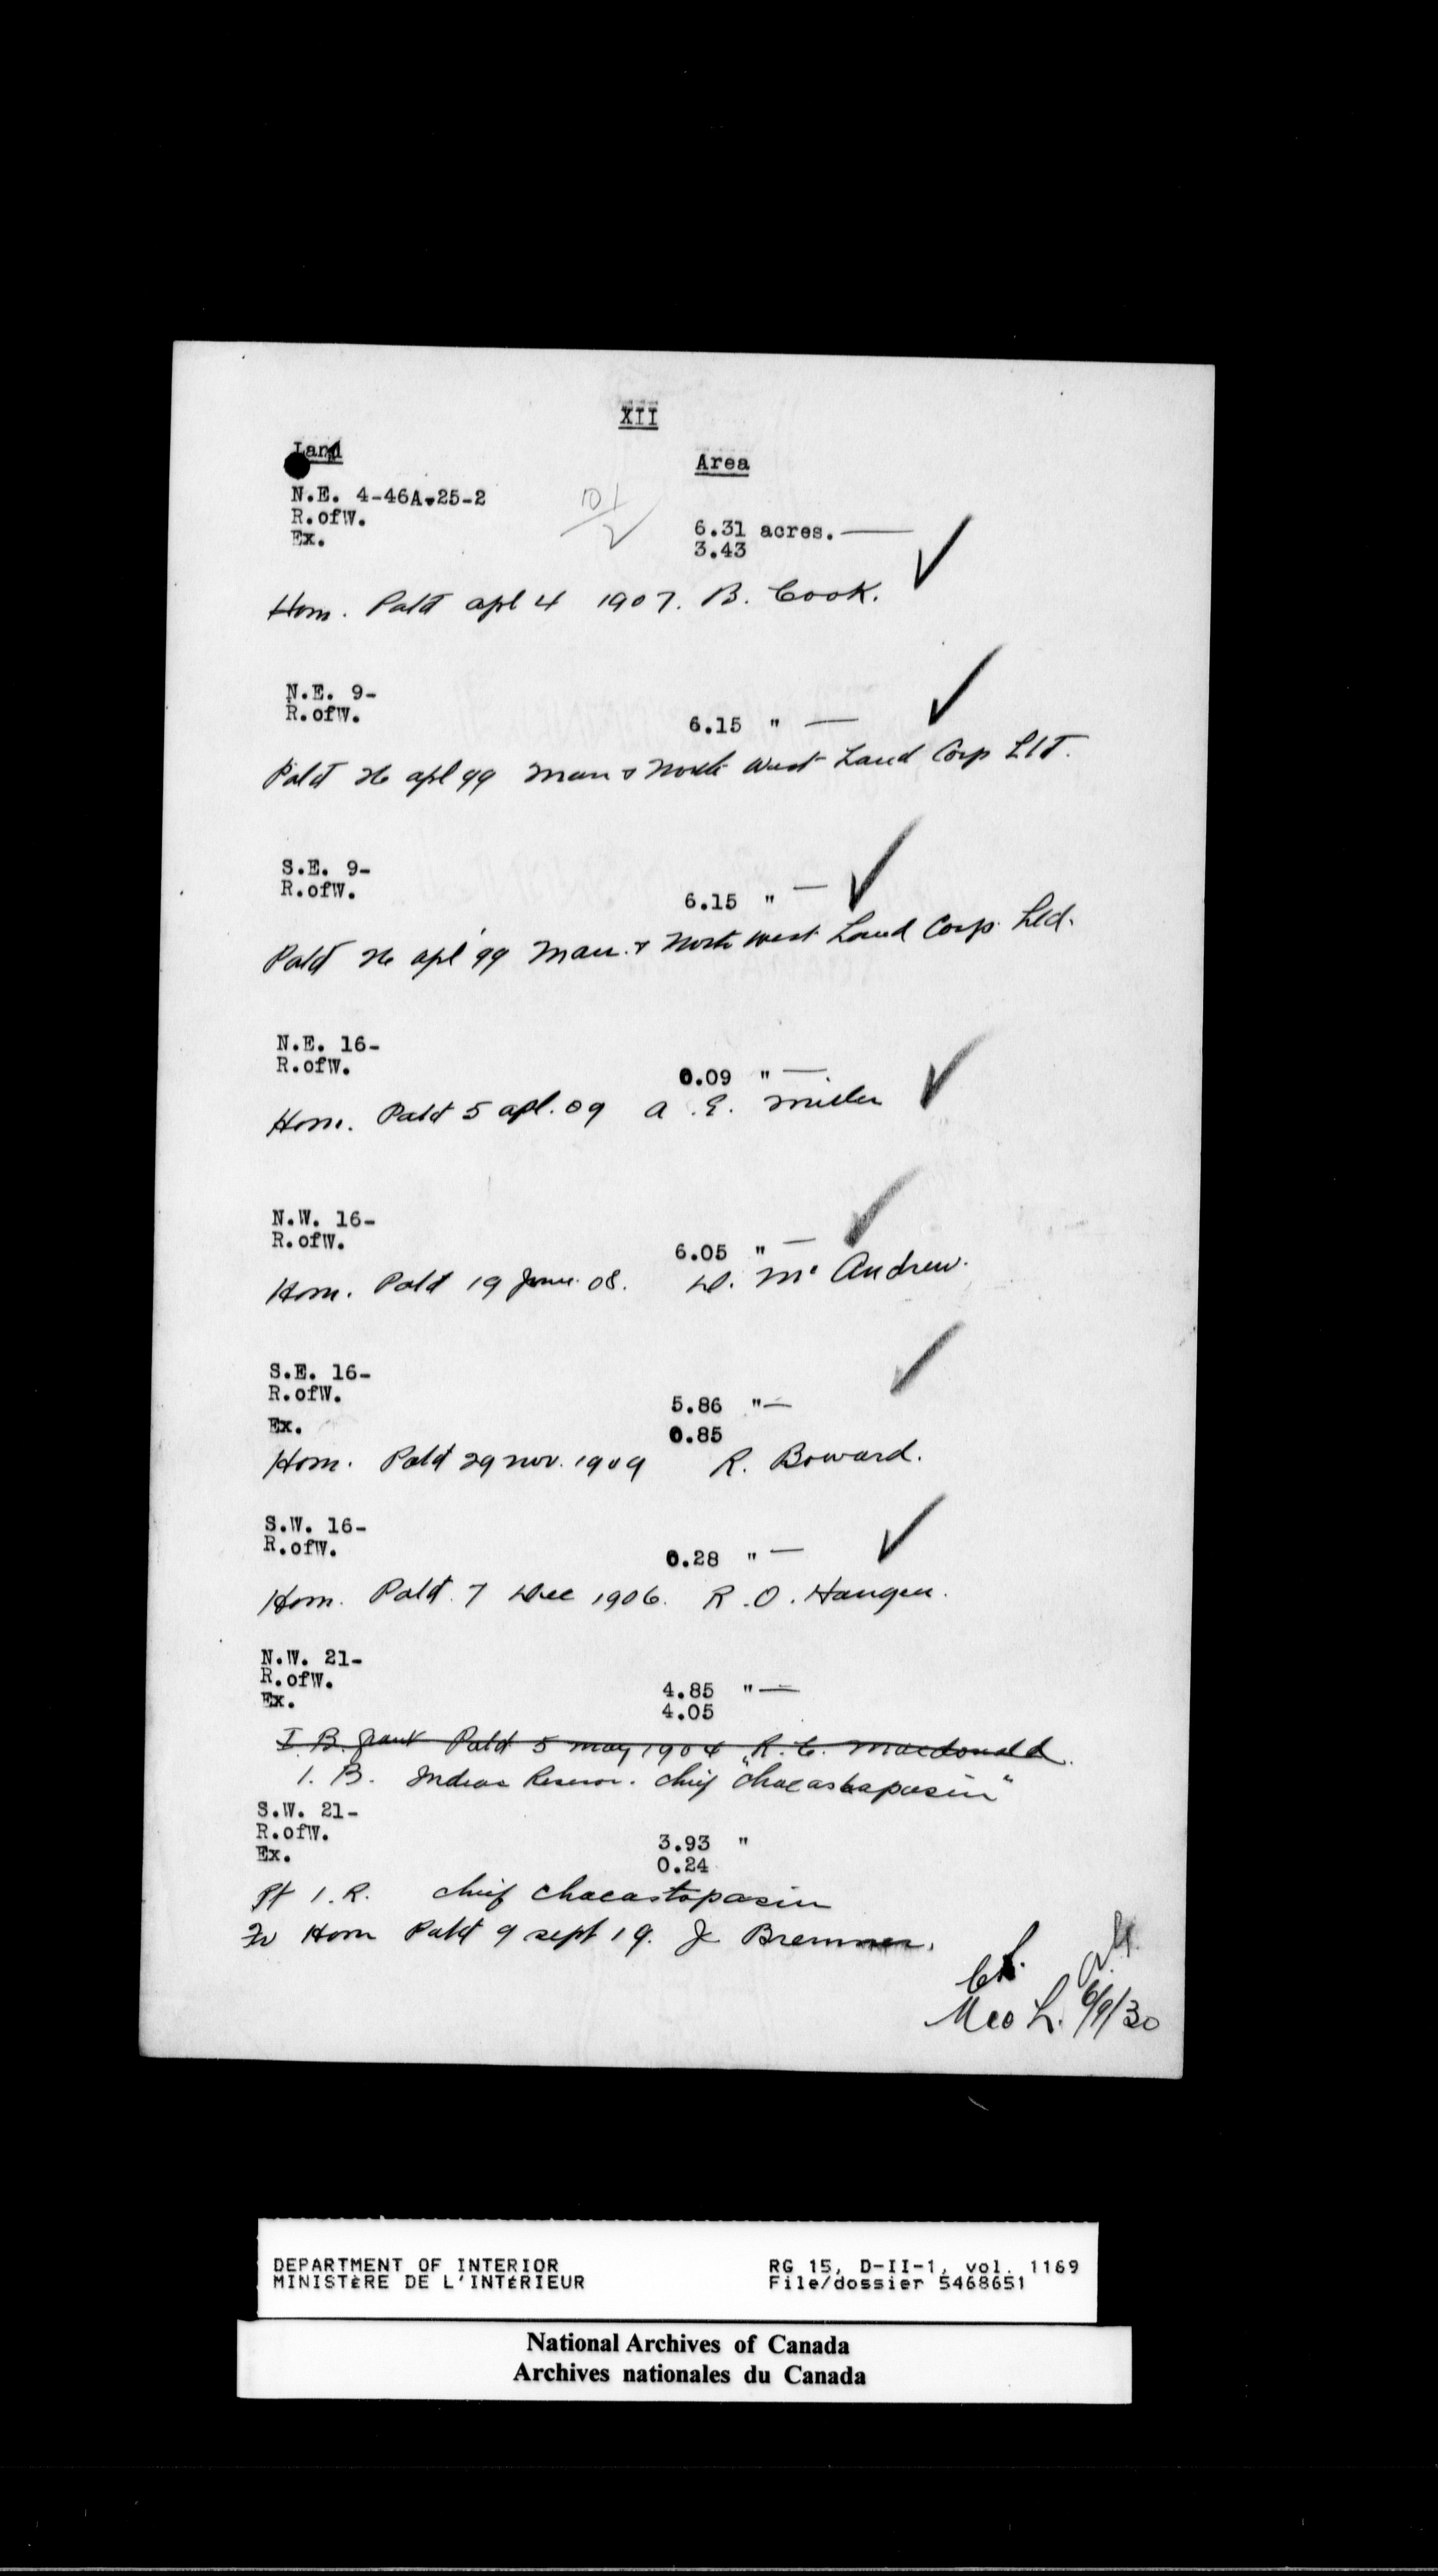 XII
Land
Area
N.E. 4-46A-25-2
R.ofW.
6.31 acres.
Ex.
3.43
Hom. Patd apl 4 1907. B. Cook.
N.E. 9-
R.ofW.
6.15 "
Patd 26 apl 99 Man & North West Land Corp Ltd.
S.E. 9-
R.ofW.
6.15 "
Patd 26 apl '99 Man. & North West Land Corp Ltd.
N.E. 16-
R.ofW.
0.09 "
Hom. Patd 5 apl. 09 A. E. Miller
N.W. 16-
R.ofW.
6.05 "
Hom. Patd 19 June 08. D. Mc Andrew.
S.E. 16-
R.ofW.
5.86 "
Ex.
0.85
Hom. Patd 29 Nov. 1909 R. Boward.
S.W. 16-
R.ofW.
0.28 "
Hom. Patd. 7 Dec 1906. R. O. Haugen.
N.W. 21-
R.ofW.
4.85 "
Ex.
4.05
I. B. Grant Patd 5 May 1904 R. C. Macdonald.
I. B. Indian Reserve. Chief "Chacastapasin"
S.W. 21-
R.ofW.
3.93 "
Ex.
0.24
Pt I. R. Chief Chacastapasin
Hom Patd 9 Sept 19. J Bremner.
6/9/30
DEPARTMENT OF INTERIOR
MINISTÈRE DE L'INTÉRIEUR
RG 15, D-II-1, vol. 1169
File/dossier 5468651
National Archives of Canada
Archives nationales du Canada